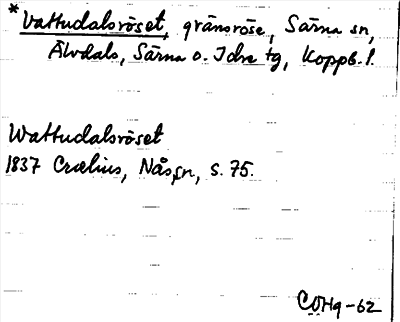 *Vattudalsröset, gränsröse, Särna sn,
Älvdals, Särna o. Idre tg, Koppb. l.
Wattudalsröset
1837 Crælius, Nås sn, s. 75.
COHg-62